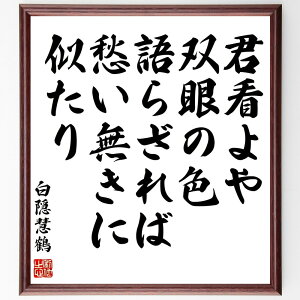 君看よや
双眼の色
語らざれば
愁い無きに
似たり
白隠慧鶴